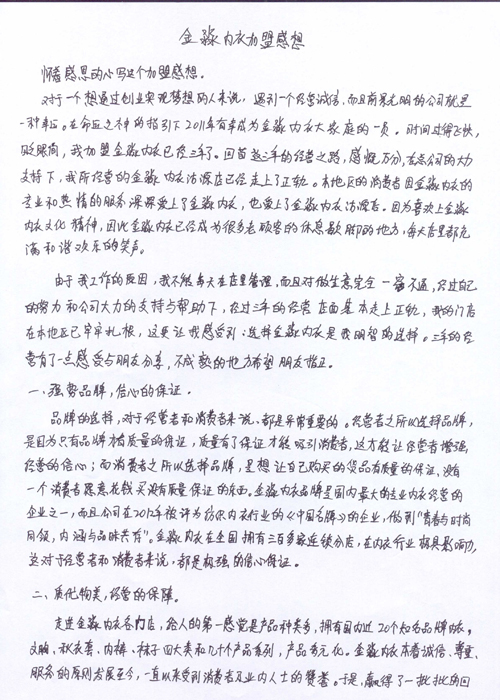 金淼内衣加盟感想
怀着感恩的心写这个加盟感想。
对于一个想通过创业实现梦想的人来说，遇到一个经营诚信，而且前景光明的公司就是
一种幸运。在命运之神的指引下2011年有幸成为金淼内衣大家庭的一员。时间过得飞快，
眨眼间，我加盟金淼内衣已经三年了。回首这三年的经营之路，感慨万分，在总公司的大力
支持下，我所经营的金淼内衣沽源店已经走上了正轨。本地区的消费者因金淼内衣的
专业和热情的服务深深爱上了金淼内衣，也爱上了金淼内衣沽源店。因为喜欢上金淼
内衣文化精神，因此金淼内衣已经成为很多老顾客的休息歇脚的地方，每天店里都充
满和谐欢乐的笑声。
由于我工作的原因，我不能每天在店里管理，而且对做生意完全一窍不通，经过自己
的努力和公司大力的支持与帮助下，经过三年的经营店面基本走上正轨，我的门店
在本地区已牢牢扎根，这更让我感受到：选择金淼内衣是我明智的选择。三年的经
营有了一点感受与朋友分享，不成熟的地方希望朋友指正。
一、强势品牌，信心的保证。
品牌的选择，对于经营者和消费者来说、都是异常重要的。经营者之所以选择品牌，
是因为只有品牌才有质量的保证，质量有了保证才能吸引消费者，这才能让经营者增强
经营的信心；而消费者之所以选择品牌，是想让自己购买的货品有质量的保证、没有
一个消费者愿意花钱买没有质量保证的东西。金淼内衣品牌是国内最大的专业内衣经营的
企业之一，而且公司在2012年被评为纺织内衣行业的《中国名牌》的企业，做到"青春与时尚
同领，内涵与品味共有"。金淼内衣在全国拥有三百多家连锁分店，在内衣行业极具影响力，
这对于经营者和消费者来说，都是极强的信心保证。
二、质优物美，经营的保障。
走进金淼内衣各门店，给人的第一感觉是产品种类多，拥有国内近20个知名品牌内衣，
文胸、秋衣套、内裤、袜子四大类和几十个产品系列，产品多元化。金淼内衣本着诚信、尊重、
服务的原则发展至今，一直以来受到消费者及业内人士的赞誉。于是，赢得了一批批的回